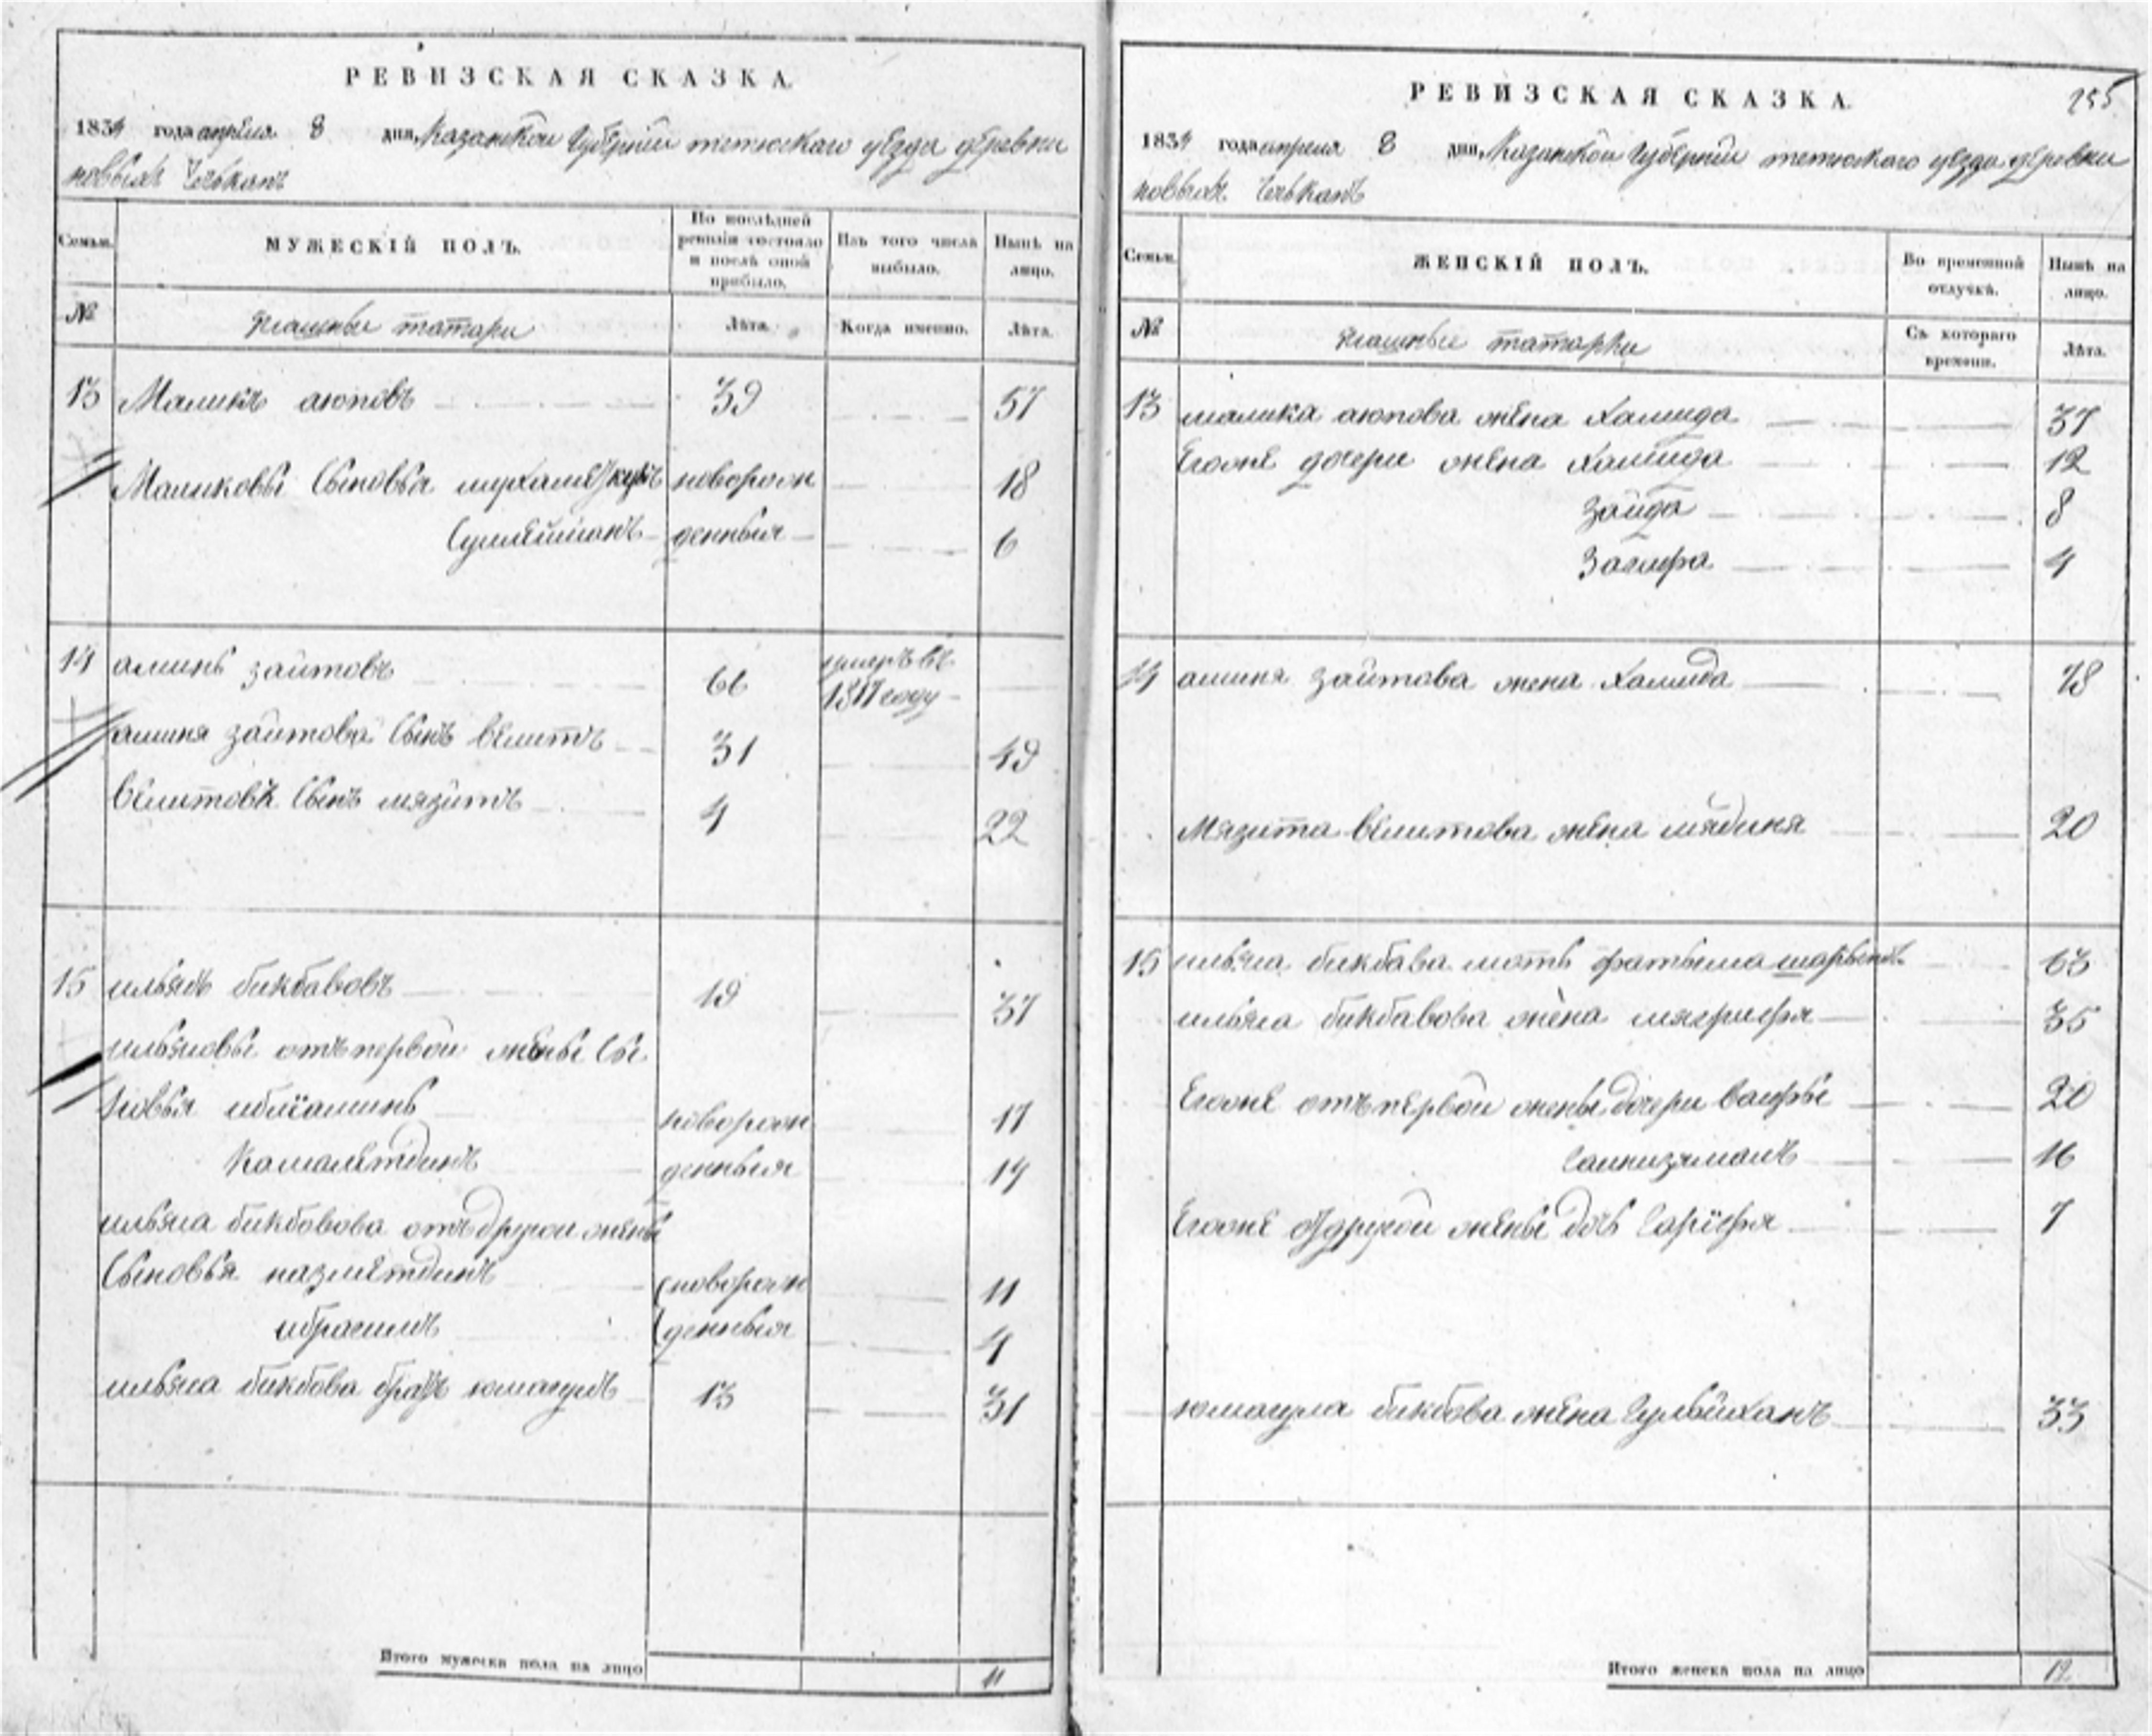 РЕВИЗСКАЯ СКАЗКА.
1834 года апреля 8 дня, Казанской Губернии тетюскаго уезда деревни
новыхъ Чечканъ
Семьи.
МУЖЕСКІЙ ПОЛЪ.
По послѣдней ревизіи состояло и послѣ оной прибыло.
Изъ того числа выбыло.
Нынѣ на лицо.
№
татары
Лѣта.
Когда именно.
Лѣта.
13 Маликъ аюповъ 39 57
Маликовы Сыновья новорож 18
Сулейманъ денныя 6
14 аминь заитовъ 66 умеръ въ
1817 году
аминя заитова Сынъ велитъ 31 49
велитовъ Сынъ мязитъ 4 22
15 ильясъ бикбавовъ 19 37
ильясовы отъ первой жены Сы
новья новорож 17
Камалетдинъ денныя 14
ильяса бикбовова отъ другои жены
Сыновья назметдинъ новорож 11
ибрагимъ денныя 4
ильяса бикбова братъ юмагулъ 13 31
Итого мужеска пола на лицо 11
РЕВИЗСКАЯ СКАЗКА. 255
1834 года апреля 8 дня, Казанской Губерніи тетюскаго уезда деревни
новыхъ Чечканъ
Семьи.
ЖЕНСКІЙ ПОЛЪ.
Во временной отлучкѣ.
Нынѣ на лицо.
№
татарки
Съ котораго времени.
Лѣта.
13 малика аюпова жена Хамида 37
Егоже дочери жена Хамида 12
Заида 8
Загифа 4
14 аминя Заитова жена Хамида 78
Мязита велитова жена мядиня 20
15 ильяса бикбава мать фатыма 63
ильяса бикбавова жена мягрифя 35
Егоже отъ первой жены дочери 20
16
Егоже от другой жены дочь Сарифя 7
юмагула бикбова жена Гульбиханъ 33
Итого женска пола на лицо 12